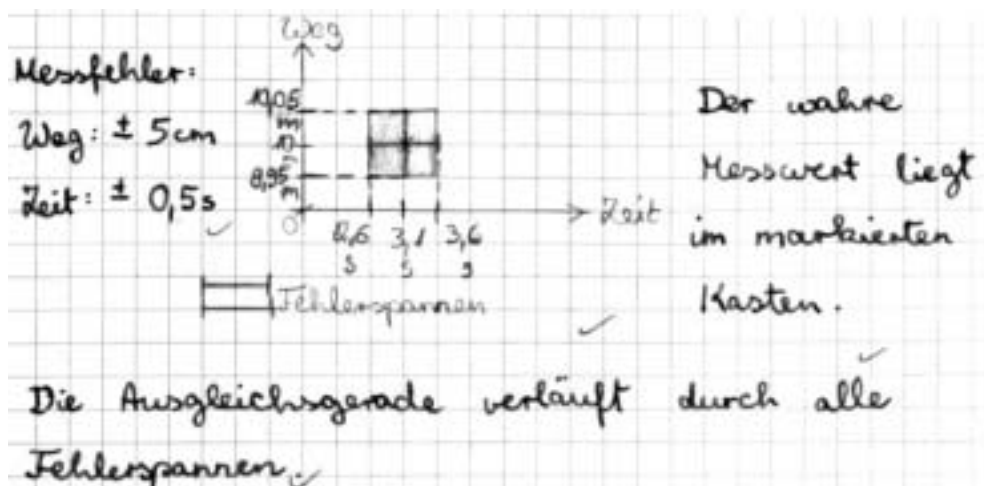 Messfehler:
Weg: ± 5cm
Zeit: ± 0,5s
Weg
10,05
m
10
8,95
m
0
2,6 3,1 3,6
s s s
Zeit
Fehlerspannen
Der wahre
Messwert liegt
im markierten
Kasten.
Die Ausgleichsgerade verläuft durch alle
Fehlerspannen.